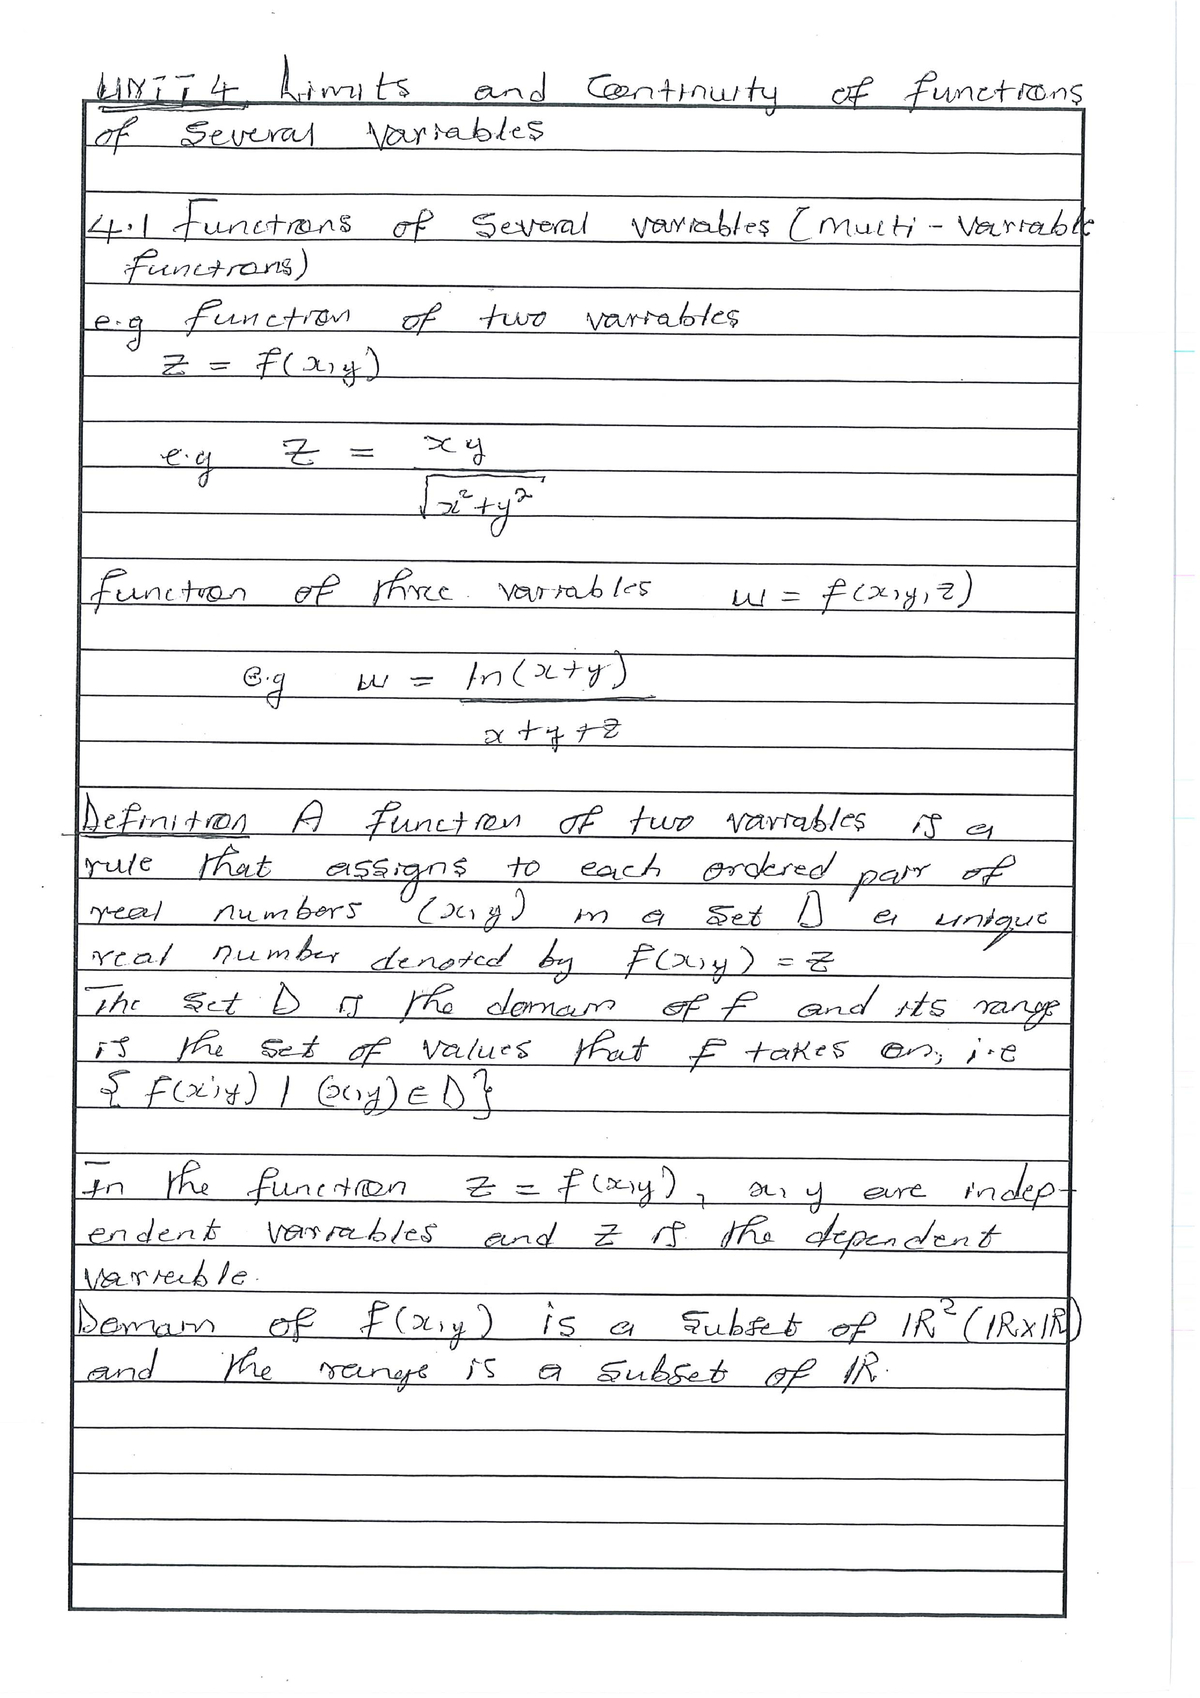 UNIT 4 Limits and Continuity of functions
of Several Variables
4.1 Functions of Several variables (Multi-Variable
functions)
e.g function of two variables
z = f(x,y)
e.g z = xy
√x²+y²
function of three variables w = f(x,y,z)
e.g w = ln(x+y)
x+y+z
Definition A function of two variables is a
rule that assigns to each ordered pair of
real numbers (x,y) in a set D a unique
real number denoted by f(x,y) = z
The set D is the domain of f and its range
is the set of values that f takes on, i.e
{ f(x,y) | (x,y) ∈ D}
In the function z = f(x,y), x, y are indep-
endent variables and z is the dependent
variable.
Domain of f(x,y) is a subset of ℝ² (ℝxℝ)
and the range is a subset of ℝ.